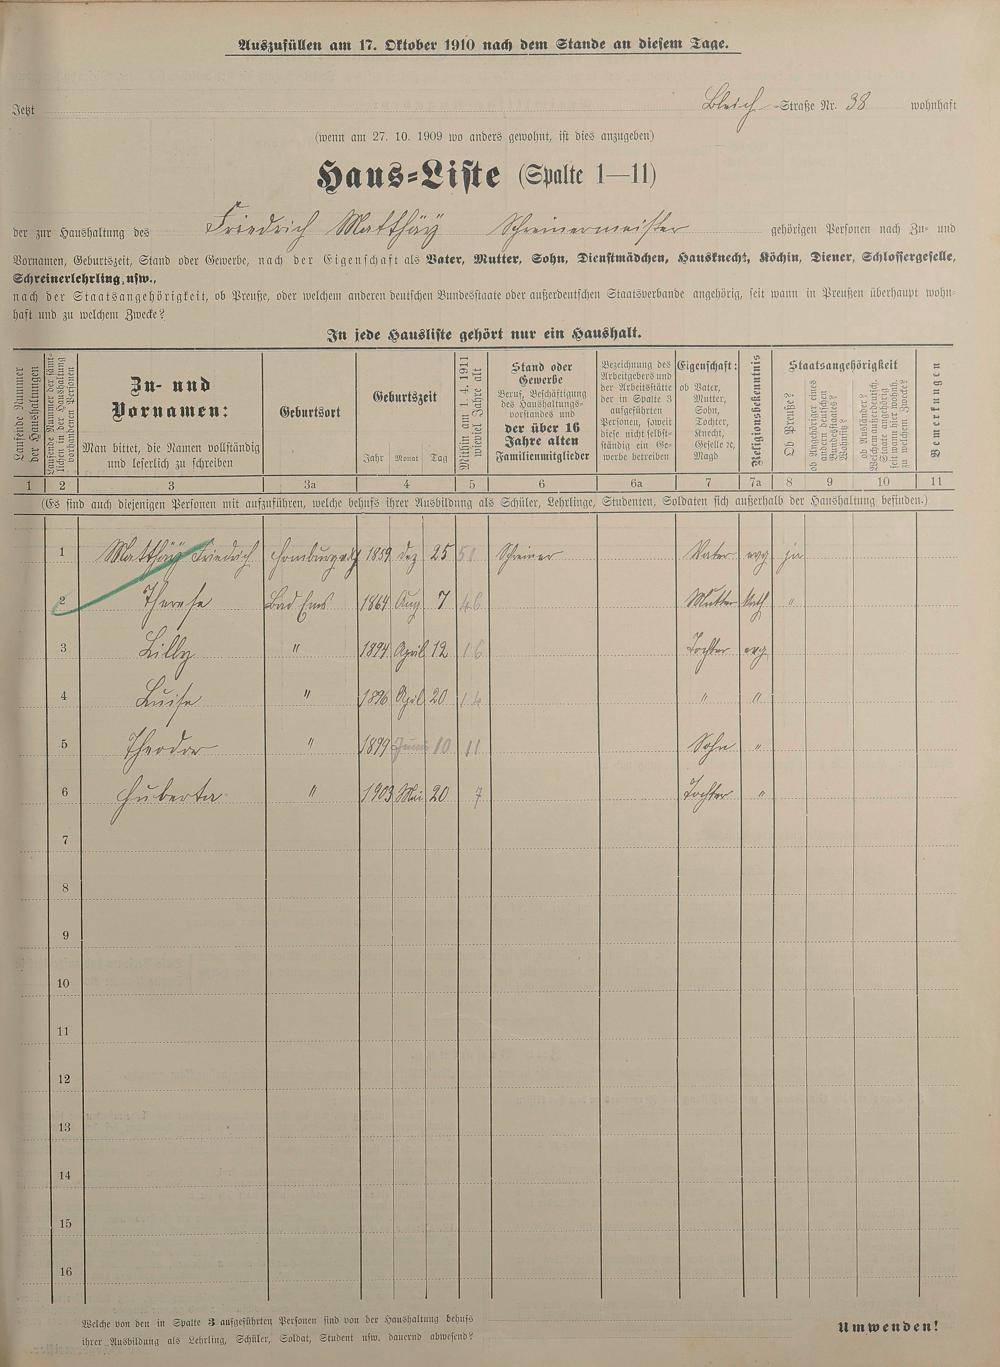 Auszufüllen am 17. Oktober 1910 nach dem Stande an diesem Tage.
Jetzt Bleich-Straße Nr. 38 wohnhaft
(wenn am 27. 10. 1909 wo anders gewohnt, ist dies anzugeben)
Haus-Liste (Spalte 1—11)
der zur Haushaltung des Friedrich Matthäy Schreinermeister gehörigen Personen nach Zu- und
Vornamen, Geburtszeit, Stand oder Gewerbe, nach der Eigenschaft als Vater, Mutter, Sohn, Dienstmädchen, Hausknecht, Köchin, Diener, Schlossergeselle,
Schreinerlehrling, usw.,
nach der Staatsangehörigkeit, ob Preuße, oder welchem anderen deutschen Bundesstaate oder außerdeutschen Staatsverbande angehörig, seit wann in Preußen überhaupt wohn-
haft und zu welchem Zwecke?
In jede Hausliste gehört nur ein Haushalt.
Laufende Nummer der Haushaltungen
Laufende Nummer der sämt-
lichen in der Haushaltung
vorhandenen Personen
Zu- und
Vornamen:
Man bittet, die Namen vollständig
und leserlich zu schreiben
Geburtsort
Geburtszeit
Jahr Monat Tag
Mithin am 1. 4. 1911
wieviel Jahre alt
Stand oder
Gewerbe
Beruf, Beschäftigung
des Haushaltungs-
vorstandes und
der über 16
Jahre alten
Familienmitglieder
Bezeichnung des
Arbeitgebers und
der Arbeitsstätte
der in Spalte 3
aufgeführten
Personen, soweit
diese nicht selbst-
ständig ein Ge-
werbe betreiben
Eigenschaft:
ob Vater,
Mutter,
Sohn,
Tochter,
Knecht,
Geselle ꝛc,
Magd
Religionsbekenntnis
Staatsangehörigkeit
Ob Preuße?
ob Angehöriger eines
andern deutschen
Bundesstaates?
Welchen?
ob Ausländer?
Welchem außerdeutsch.
Staate angehörig
seit wann hier wohnh.
zu welchem Zwecke?
Bemerkungen
1 2 3 3a 4 5 6 6a 7 7a 8 9 10 11
(Es sind auch diejenigen Personen mit aufzuführen, welche behufs ihrer Ausbildung als Schüler, Lehrlinge, Studenten, Soldaten sich außerhalb der Haushaltung befinden.)
1 Matthäy Friedrich Homburg 1859 Dez 25 51 Schreiner Vater evg ja
2 Therese Bad Ems 1864 Aug 7 46 Mutter Kath "
3 Lilly " 1894 April 12 16 Tochter evg
4 Luise " 1896 April 20 14 " "
5 Theodor " 1899 Juni 10 11 Sohn "
6 Huberta " 1903 Mai 20 7 Tochter "
7
8
9
10
11
12
13
14
15
16
Welche von den in Spalte 3 aufgeführten Personen sind von der Haushaltung behufs
ihrer Ausbildung als Lehrling, Schüler, Soldat, Student usw. dauernd abwesend?
Umwenden!